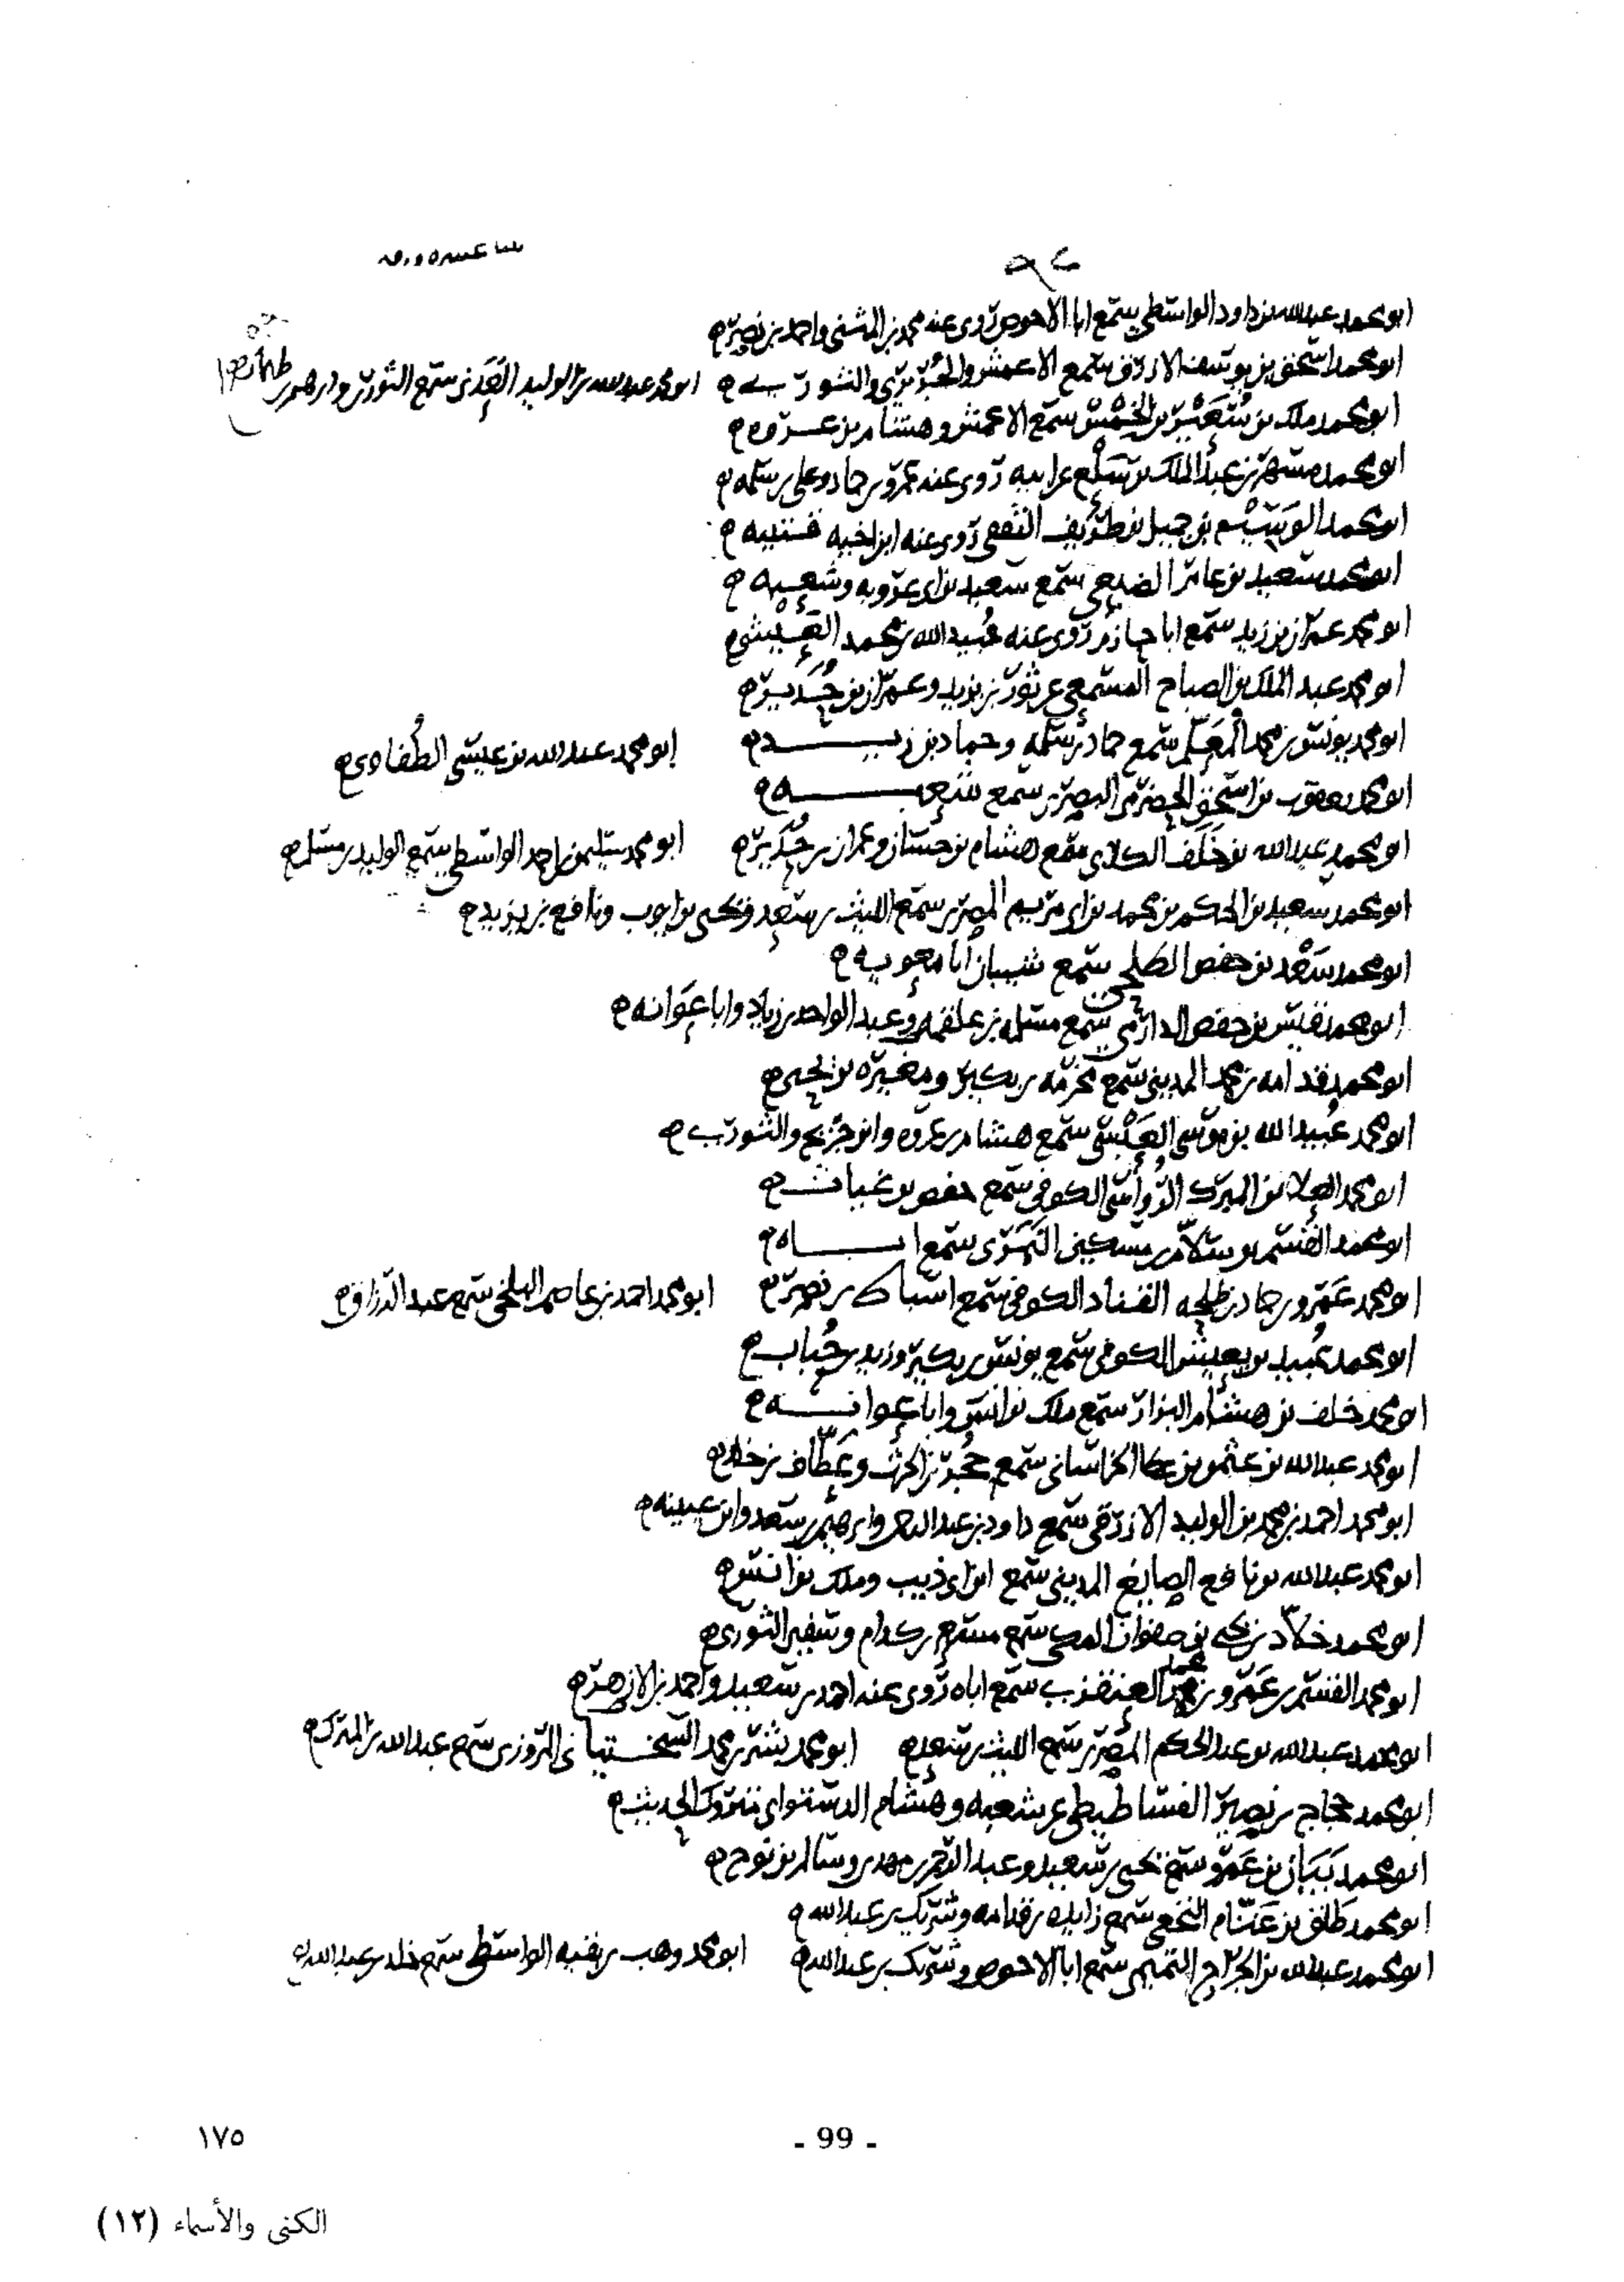 ابو محمد عبد الله بن داود الواسطي سمع ابا الاحوص روى عنه محمد بن المثنى واحمد بن نصر
ابو محمد اسحق بن يوسف الازرق سمع الاعمش والجريري والثوري ابو محمد عبد الله بن الوليد العدني سمع الثوري وابرهيم بن طهمان
ابو محمد ملك بن سعير بن الخمس سمع الاعمش وهشام بن عروه
ابو محمد مسهر بن عبد الملك بن سلع عن ابيه روى عنه عمرو بن حماد وعلي بن سلمه
ابو محمد الوسيم بن جميل بن طريف الثقفي روى عنه ابن اخيه قتيبه
ابو محمد سعيد بن عامر الضبعي سمع سعيد بن ابي عروبه وشعبه
ابو محمد عمران بن زيد سمع ابا حازم روى عنه عبيد الله بن محمد العيشي
ابو محمد عبد الملك بن الصباح المسمعي عن ثور بن يزيد وعمران بن حدير
ابو محمد يونس بن محمد المعلم سمع حماد بن سلمه وحماد بن زيد ابو محمد عبد الله بن عيسى الطفاوي
ابو محمد يعقوب بن اسحق الحضرمي البصري سمع شعبه
ابو محمد عبد الله بن خلف الطفاوي سمع هشام بن حسان وعمران بن حدير ابو محمد سليمن بن احمد الواسطي سمع الوليد بن مسلم
ابو محمد سعيد بن الحكم بن محمد بن ابي مريم المصري سمع الليث بن سعد ويحيى بن ايوب ونافع بن يزيد
ابو محمد سعد بن حفص الطلحي سمع شيبان ابا معويه
ابو محمد قيس بن حفص الدارمي سمع مسلمه بن علقمه وعبد الواحد بن زياد وابا عوانه
ابو محمد قدامه بن محمد المديني سمع مخرمه بن بكير ومغيره بن يحيى
ابو محمد عبيد الله بن موسى العبسي سمع هشام بن عروه وابن جريج والثوري
ابو محمد العلا بن المبرك الرؤاسي الكوفي سمع حفص بن غياث
ابو محمد القسم بن سلام بن مسكين النمري سمع اباه
ابو محمد عمرو بن حماد بن طلحه القناد الكوفي سمع اسباط بن نصر ابو محمد احمد بن عاصم البلخي سمع عبد الرزاق
ابو محمد عبيد بن يعيش الكوفي سمع يونس بن بكير وزيد بن حباب
ابو محمد خلف بن هشام البزار سمع ملك بن انس وابا عوانه
ابو محمد عبد الله بن عثمن بن عطا الخراساني سمع حجر بن الحرث وعطاف بن خالد
ابو محمد احمد بن محمد بن الوليد الازرقي سمع داود بن عبد الرحمن وابرهيم بن سعد وابن عيينه
ابو محمد عبد الله بن نافع الصايغ المديني سمع ابن ابي ذيب وملك بن انس
ابو محمد خلاد بن يحيى بن صفوان المكي سمع مسعر بن كدام وسفين الثوري
ابو محمد القسم بن عمرو بن محمد العنقزي سمع اباه روى عنه احمد بن سعيد واحمد بن الازهر
ابو محمد عبد الله بن عبد الحكم المصري سمع الليث بن سعد ابو محمد بشر بن محمد السختياني المروزي سمع عبد الله بن المبرك
ابو محمد حجاج بن نصير الفساطيطي عن شعبه وهشام الدستوائي متروك الحديث
ابو محمد بيان بن عمرو سمع يحيى بن سعيد وعبد الرحمن بن مهدي وسالم بن نوح
ابو محمد طلق بن غنام النخعي سمع زايده بن قدامه وشريك بن عبد الله
ابو محمد عبد الله بن الجراح التميمي سمع ابا الاحوص وشريك بن عبد الله ابو محمد وهب بن بقيه الواسطي سمع خلد بن عبد الله
- 99 -
١٧٥
الكنى والأسماء (١٢)